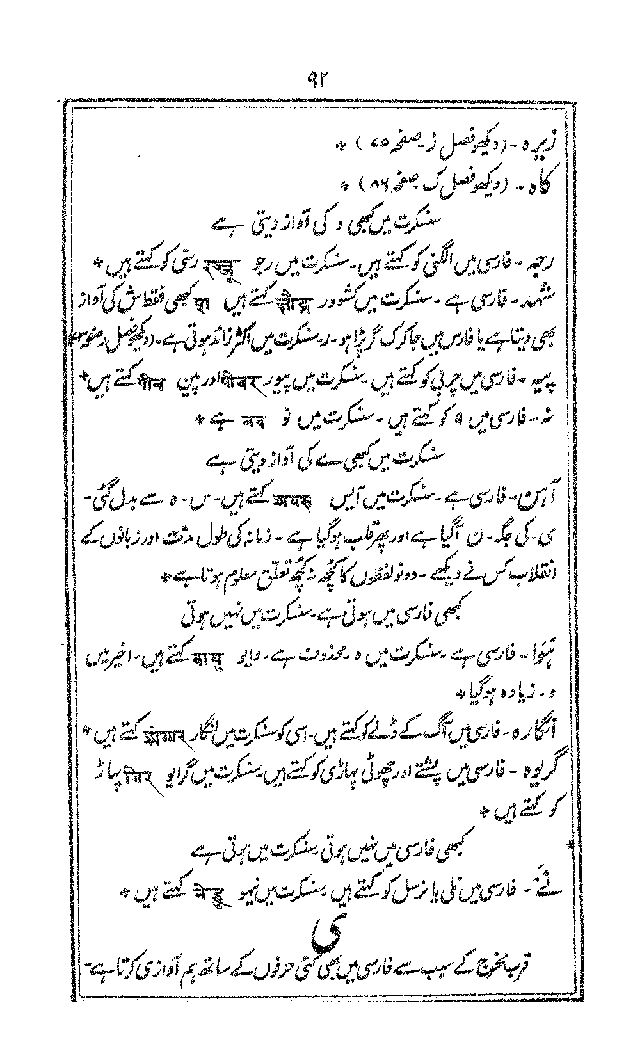 ۹۲
زیره - (دیکھو فصل ز - صفحہ ۷۵) *
کاہ - (دیکھو فصل ک صفحہ ۸۶) *
سنسکرت میں کبھی د کی آواز دیتی ہے
رجہ - فارسی میں الگنی کو کہتے ہیں - سنسکرت میں رجو रज्जू رسّی کو کہتے ہیں *
شہد - فارسی ہے - سنسکرت میں کشودر क्षौद्र کہتے ہیں کبھی فقط ش کی آواز
بھی دیتا ہے یا فارس میں جا کر ک گر پڑا ہو - ر سنسکرت میں اکثر زائد ہوتی ہے - (دیکھو فصل ر
پیہ - فارسی میں چربی کو کہتے ہیں سنسکرت میں پیور पीवर् اور پین पीन کہتے ہیں *
نہ - فارسی میں ۹ کو کہتے ہیں - سنسکرت میں نو नव ہے *
سنسکرت میں کبھی ے کی آواز دیتی ہے
آہن - فارسی ہے - سنسکرت میں آیس अयस کہتے ہیں - س - ہ سے بدل گئی -
ی - کی جگہ - ن آگیا ہے اور پھر قلب ہوگیا ہے - زمانہ کی طول مدّت اور زبانوں کے
انقلاب کس نے دیکھے - دونو لفظوں کا کچھ نہ کچھ تعلق معلوم ہوتا ہے *
کبھی فارسی میں ہوتی ہے - سنسکرت میں نہیں ہوتی
ہَوا - فارسی ہے - سنسکرت میں ہ محذوف ہے - وایو वायु کہتے ہیں - اخیر میں
و - زیادہ ہوگیا *
انگارہ - فارسی میں آگ کے ڈلے کو کہتے ہیں - اسی کو سنسکرت میں انگار अंगार् کہتے ہیں *
گریوہ - فارسی میں پشتے اور چھوٹی پہاڑی کو کہتے ہیں - سنسکرت میں گراو गिर् پہاڑ
کو کہتے ہیں *
کبھی فارسی میں نہیں ہوتی سنسکرت میں ہوتی ہے
نَے - فارسی میں نلی یا نرسل کو کہتے ہیں - سنسکرت میں کہتے ہیں *
ی
قرب مخرج کے سبب سے فارسی میں بھی کئی حرفوں کے ساتھ ہم آوازی کرتا ہے -